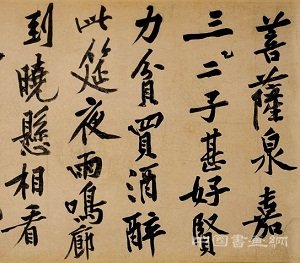 菩薩泉嘉
三二子甚好賢
力貧買酒醉
此筵夜雨鳴廊
到曉懸相看
中国書畫網